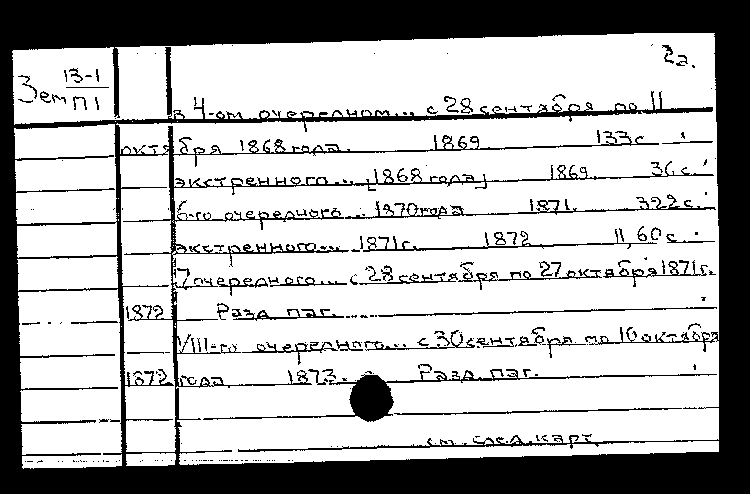 2а.
Зем 13-1
П1
в 4-ом очередном... с 28 сентября по 11
октября 1868 года. 1869. 133 с.
экстренного... [1868 года] 1869. 36 с.
6-го очередного... 1870 года 1871. 322 с.
экстренного... 1871 г. 1872. 11, 60 с.
7 очередного... с 28 сентября по 27 октября 1871 г.
1872 Разд. паг.
VIII-го очередного... с 30 сентября по 10 октября
1872 года. 1873. Разд. паг.
см. след. карт.